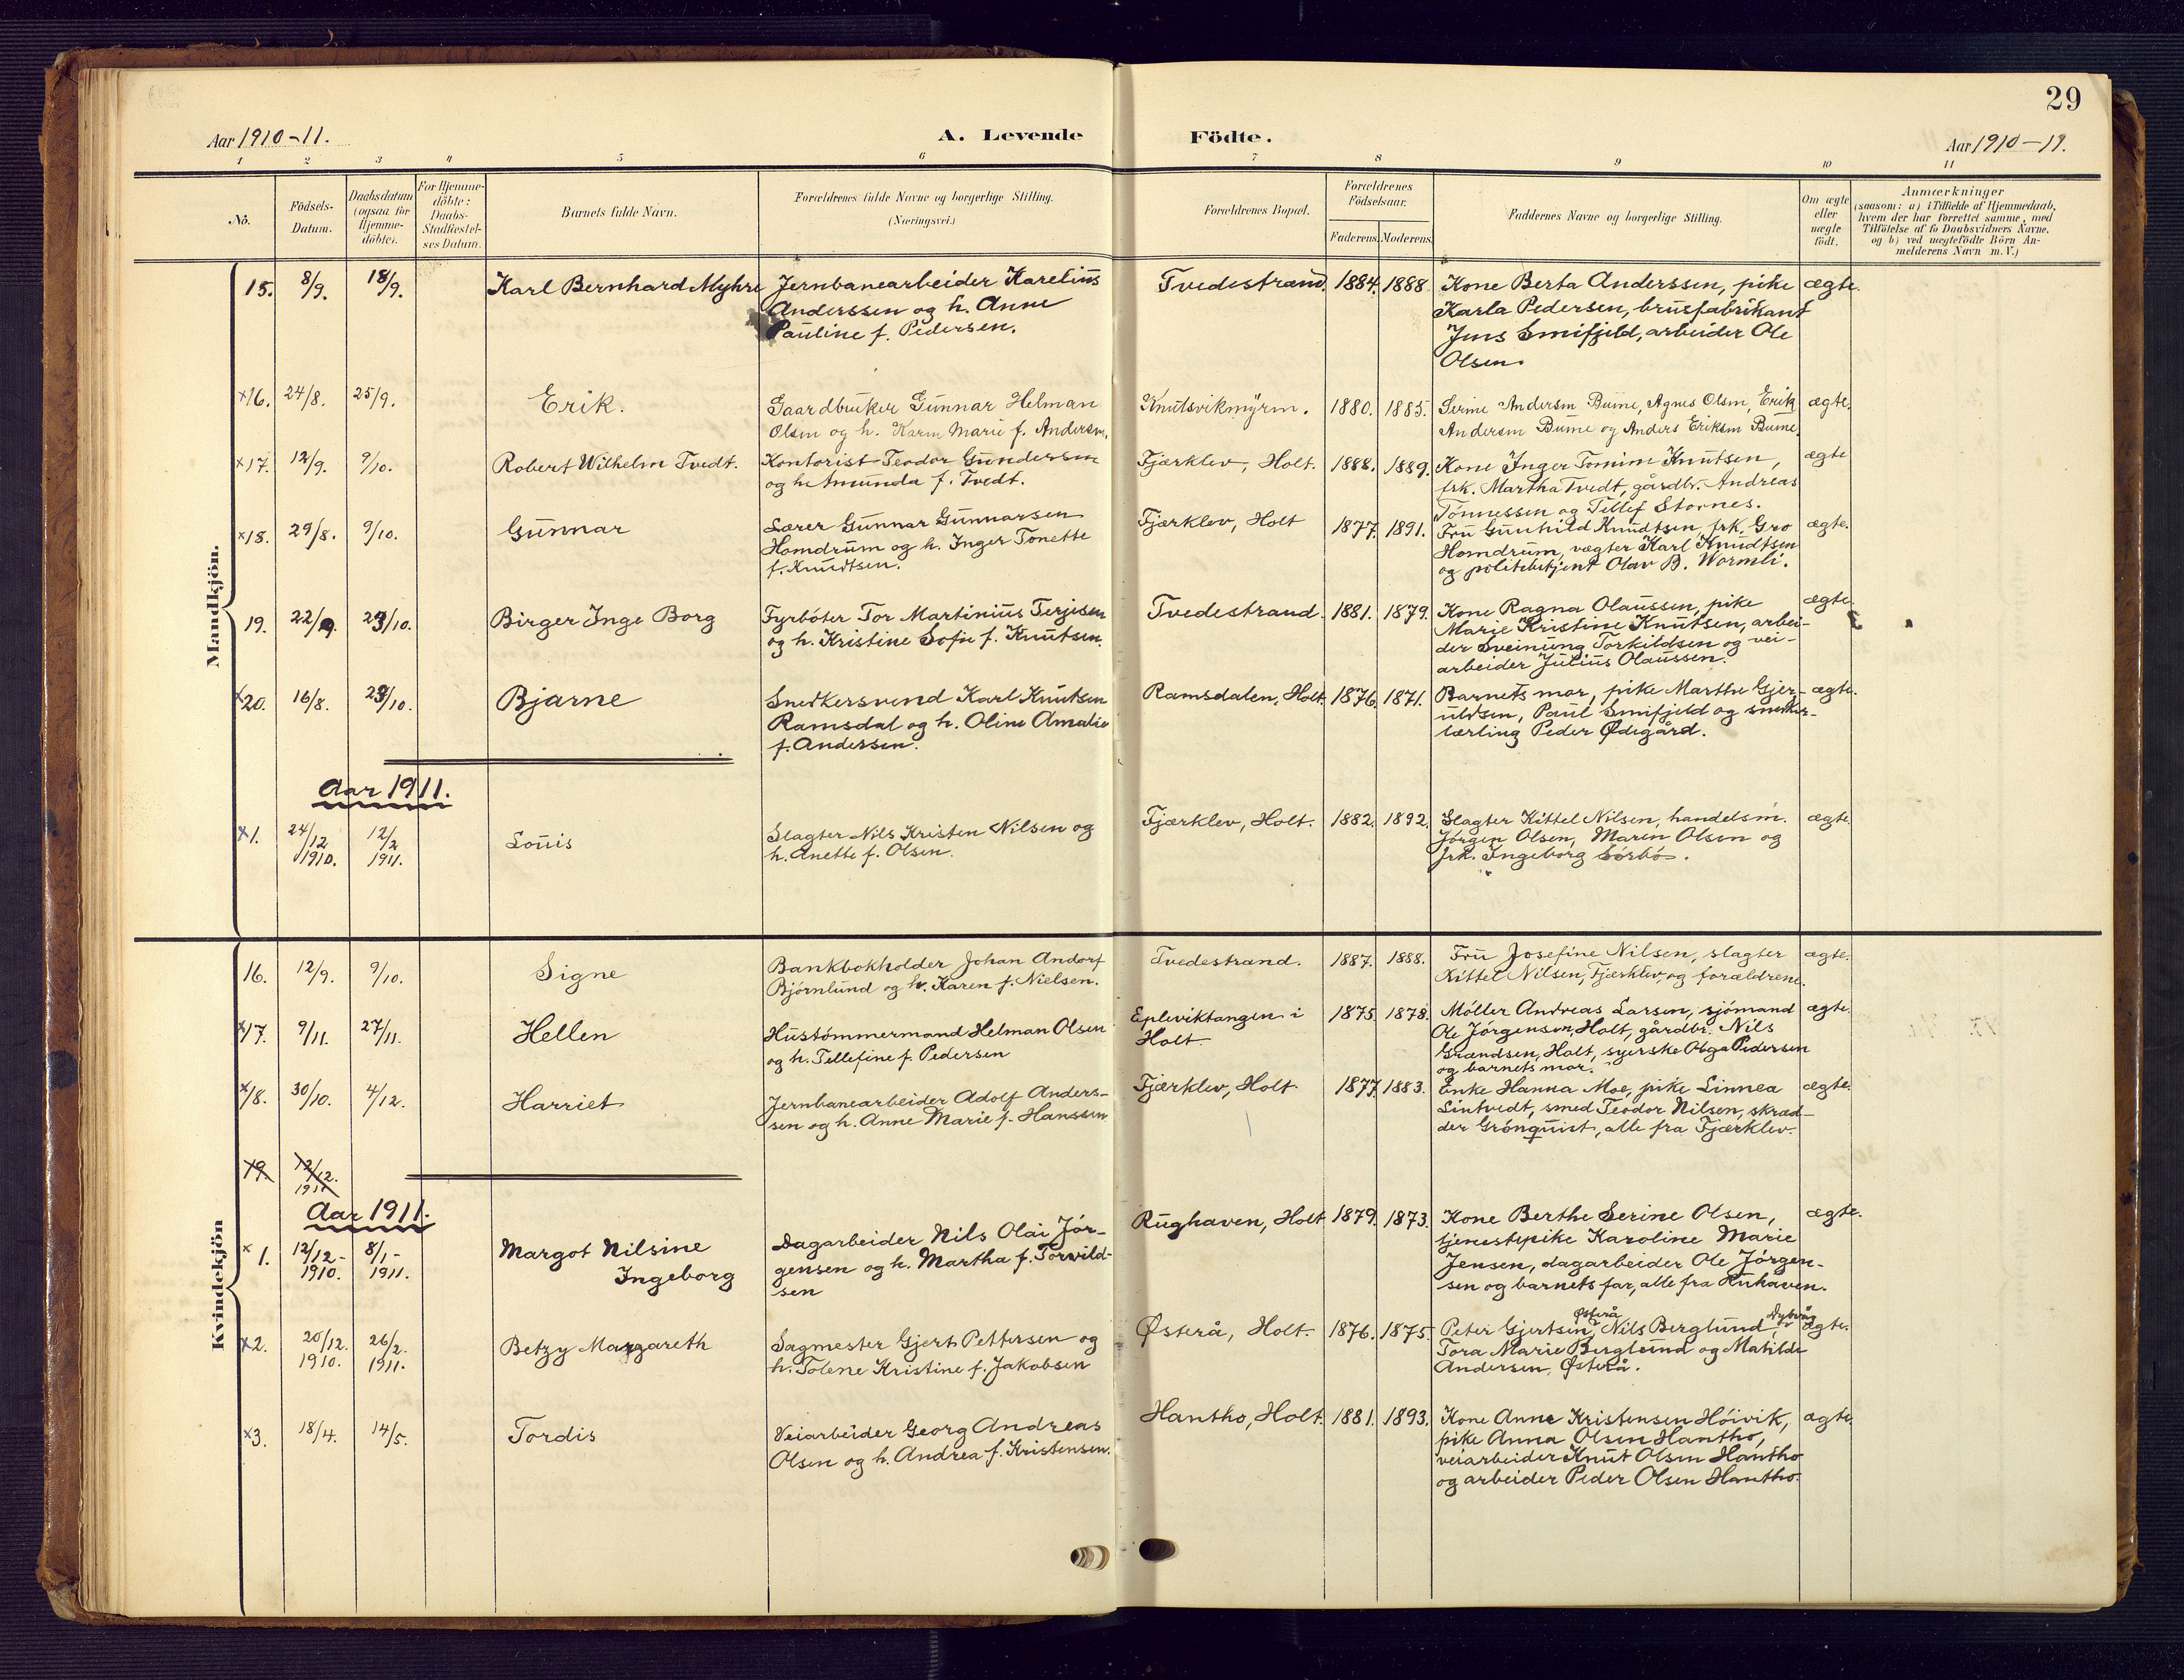 29
Aar 1910-11.
A. Levende Födte.
Aar 1910-11.
1 2 3 4 5 6 7 8 9 10 11
Nö.
Födsels-
Datum.
Daabsdatum
(ogsaa for
Hjemme-
döbte).
For Hjemme-
döbte:
Daabs-
Stadfæstel-
ses Datum.
Barnets fulde Navn.
Forældrenes fulde Navne og borgerlige Stilling.
(Næringsvei.)
Forældrenes Bopæl.
Forældrenes
Födselsaar.
Faderens. Moderens.
Faddernes Navne og borgerlige Stilling.
Om ægte
eller
uægte
födt.
Anmærkninger
(saasom: a) i Tilfælde af Hjemmedaab,
hvem der har forrettet samme, med
Tilföielse af to Daabsvidners Navne,
og b) ved uægtefödte Börn An-
melderens Navn m.V.)
Mandkjön.
15. 8/9. 18/9. Karl Bernhard Myhre Jernbanearbeider Karelius Tvedestrand. 1884. 1888. Kone Berta Anderssen, pike ægte.
Anderssen og h. Anne Karla Pedersen, brusfabrikant
Pauline f. Pedersen. Jens Smifjeld, arbeider Ole
Olsen.
x16. 24/8. 25/9. Erik. Gaardbruker Gunnar Helman Knutsvikmyren. 1880. 1885. Serine Andersen Bume, Agnes Olsen, Erik ægte.
Olsen og h. Karen Marie f. Andersen. Andersen Bume og Anders Eriksen Bume.
x17. 12/9. 9/10. Robert Wilhelm Tvedt. Kontorist Teodor Gundersen Fjærklev, Holt. 1888. 1889. Kone Inger Tomine Knutsen, ægte
og h. Amunda f. Tvedt. frk. Martha Tvedt, gårdbr. Andreas
Tönnessen og Tellef Stornes.
x18. 29/8. 9/10. Gunnar Lærer Gunnar Gunnarsen Fjærklev, Holt 1877. 1891. Fru Gunhild Knudtsen, frk. Gro ægte.
Homdrum og h. Inger Tonette Homdrum, vægter Karl Knudtsen
f. Knudtsen. og politibetjent Olav B. Wormli.
19. 22/9. 23/10. Birger Inge Borg Fyrböter Tor Martinius Terjesen Tvedestrand. 1881. 1879. Kone Ragna Olaussen, pike ægte.
og h. Kristine Sofie f. Knutsen. Marie Kristine Knutsen, arbei-
der Sveinung Torkildsen og vei-
arbeider Julius Olaussen.
x20. 16/8. 23/10. Bjarne Snedkersvend Karl Knutsen Ramsdalen, Holt. 1876. 1871. Barnets mor, pike Marthe Gjer- ægte.
Ramsdal og h. Oline Amalie uldsen, Paul Smifjeld og snedker-
f. Andersen. lærling Peder Ødegård.
Aar 1911.
x1. 24/12 1910. 12/2 1911. Louis Slagter Nils Kristen Nilsen og Fjærklev, Holt. 1882. 1892. Slagter Kittel Nilsen, handelsm. ægte.
h. Anette f. Olsen. Jörgen Olsen, Maren Olsen og
frk. Ingeborg Sörbö.
Kvindekjön
16. 12/9. 9/10. Signe Bankbokholder Johan Andorf Tvedestrand. 1887. 1888. Fru Josefine Nilsen, slagter ægte.
Björnlund og h. Karen f. Nielsen. Kittel Nilsen, Fjærklev, og forældrene.
x17. 9/11. 27/11. Hellen Hustömmermand Helman Olsen Epleviktangen i 1875. 1878. Möller Andreas Larsen, sjömand ægte.
og h. Tellefine f. Pedersen Holt. Ole Jörgensen, Holt, gårdbr. Nils
Grændsen, Holt, syerske Olga Pedersen
og barnets mor.
x18. 30/10. 4/12. Harriet Jernbanearbeider Adolf Anders- Fjærklev, Holt. 1877. 1883. Enke Hanna Moe, pike Linnea ægte.
sen og h. Anne Marie f. Hanssen. Lintvedt, smed Teodor Nilsen, skræd-
der Grönquist, alle fra Fjærklev.
19. 12/12.
Aar 1911.
x 1. 12/12 - 1910. 8/1 - 1911. Margot Nilsine Dagarbeider Nils Olai Jör- Rughaven, Holt. 1879. 1873. Kone Berthe Serine Olsen, ægte.
Ingeborg gensen og h. Martha f. Torvild- tjenestepike Karoline Marie
sen Jensen, dagarbeider Ole Jörgen-
sen og barnets far, alle fra Ruhaven.
x2. 20/12. 1910. 26/2. 1911. Betzy Margareth Sagmester Gjert Pettersen og Østerå, Holt. 1876. 1875. Peter Gjertsen, Østerå, Nils Berglund, Dybvåg ægte.
h. Tolene Kristine f. Jakobsen Tora Marie Berglund og Matilde
Andersen, Østerå.
x3. 18/4. 14/5. Tordis Veiarbeider Georg Andreas Hantho, Holt. 1881. 1893. Kone Anne Kristensen Höivik, ægte.
Olsen og h. Andrea f. Kristensen. pike Anna Olsen Hantho,
veiarbeider Knut Olsen Hantho
og arbeider Peder Olsen Hantho.